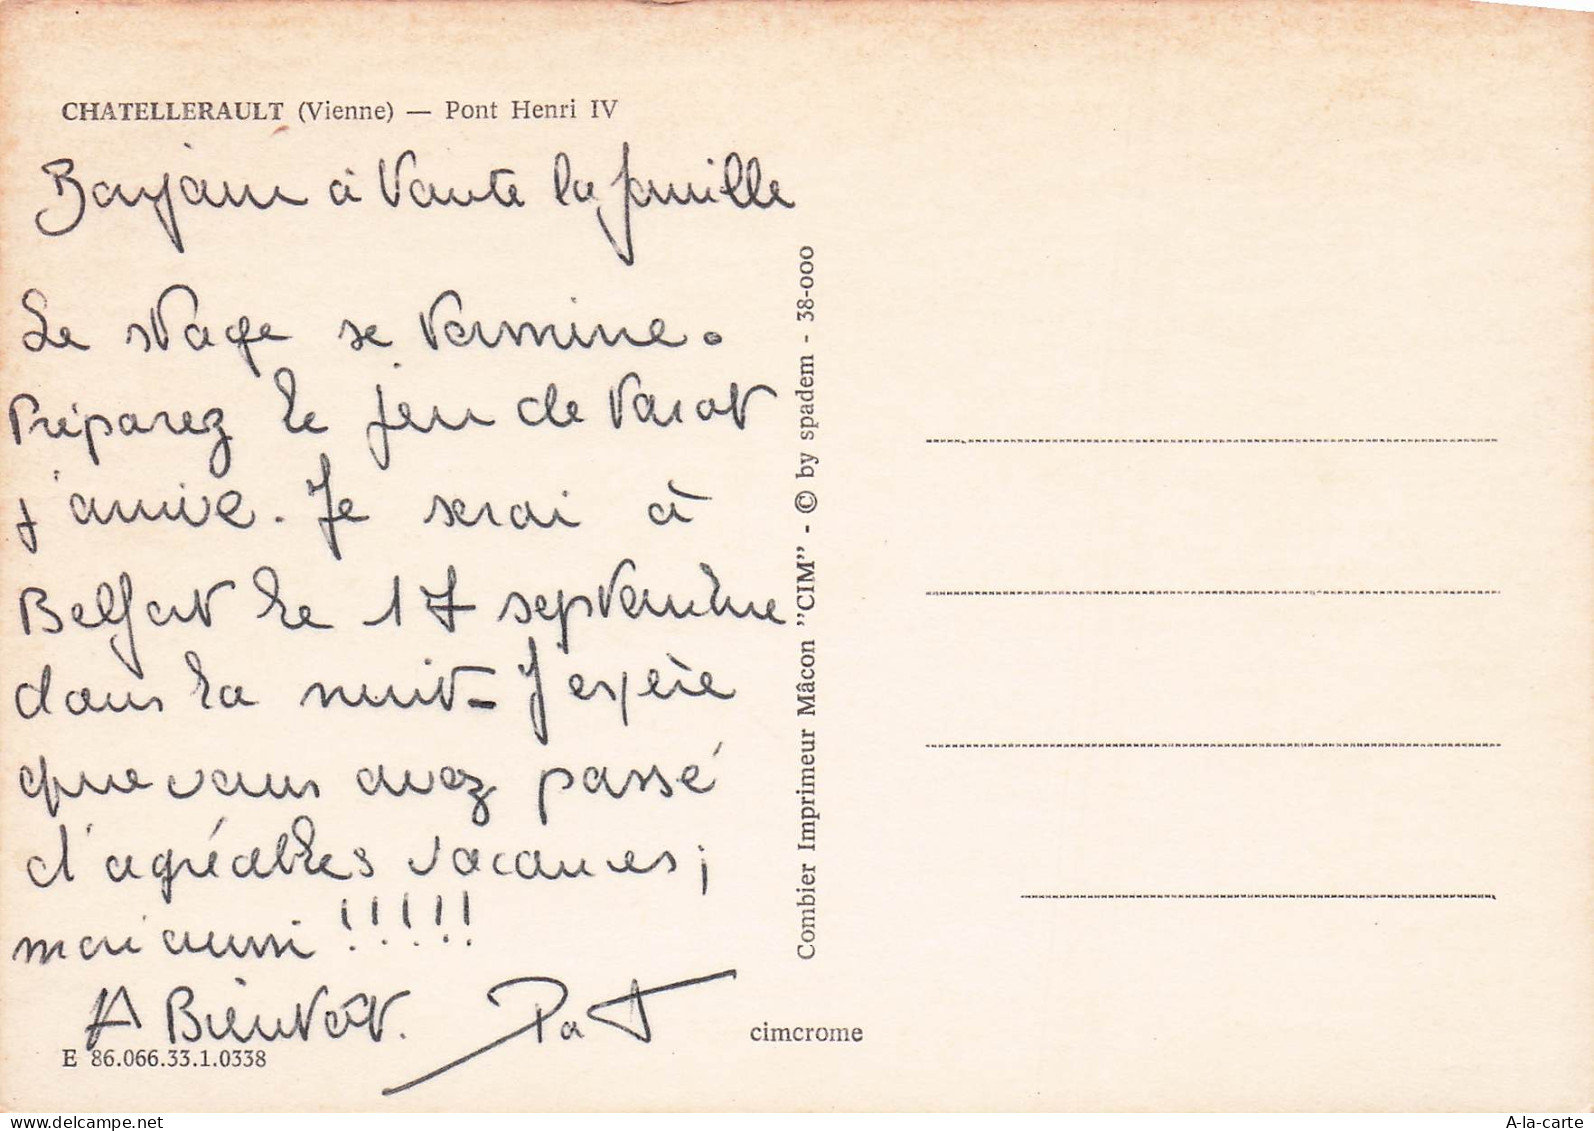 CHATELLERAULT (Vienne) — Pont Henri IV
Bonjour à toute la famille
Le stage se termine.
Préparez le jeu de tarot
j'arrive. Je serai à
Belfort le 17 septembre
dans la nuit_ J'espère
que vous avez passé
d'agréables vacances ;
moi aussi !!!!!
A Bientôt. Pat
E 86.066.33.1.0338
Combier Imprimeur Mâcon "CIM" - © by spadem - 38-000
cimcrome
delcampe.net
A-la-carte